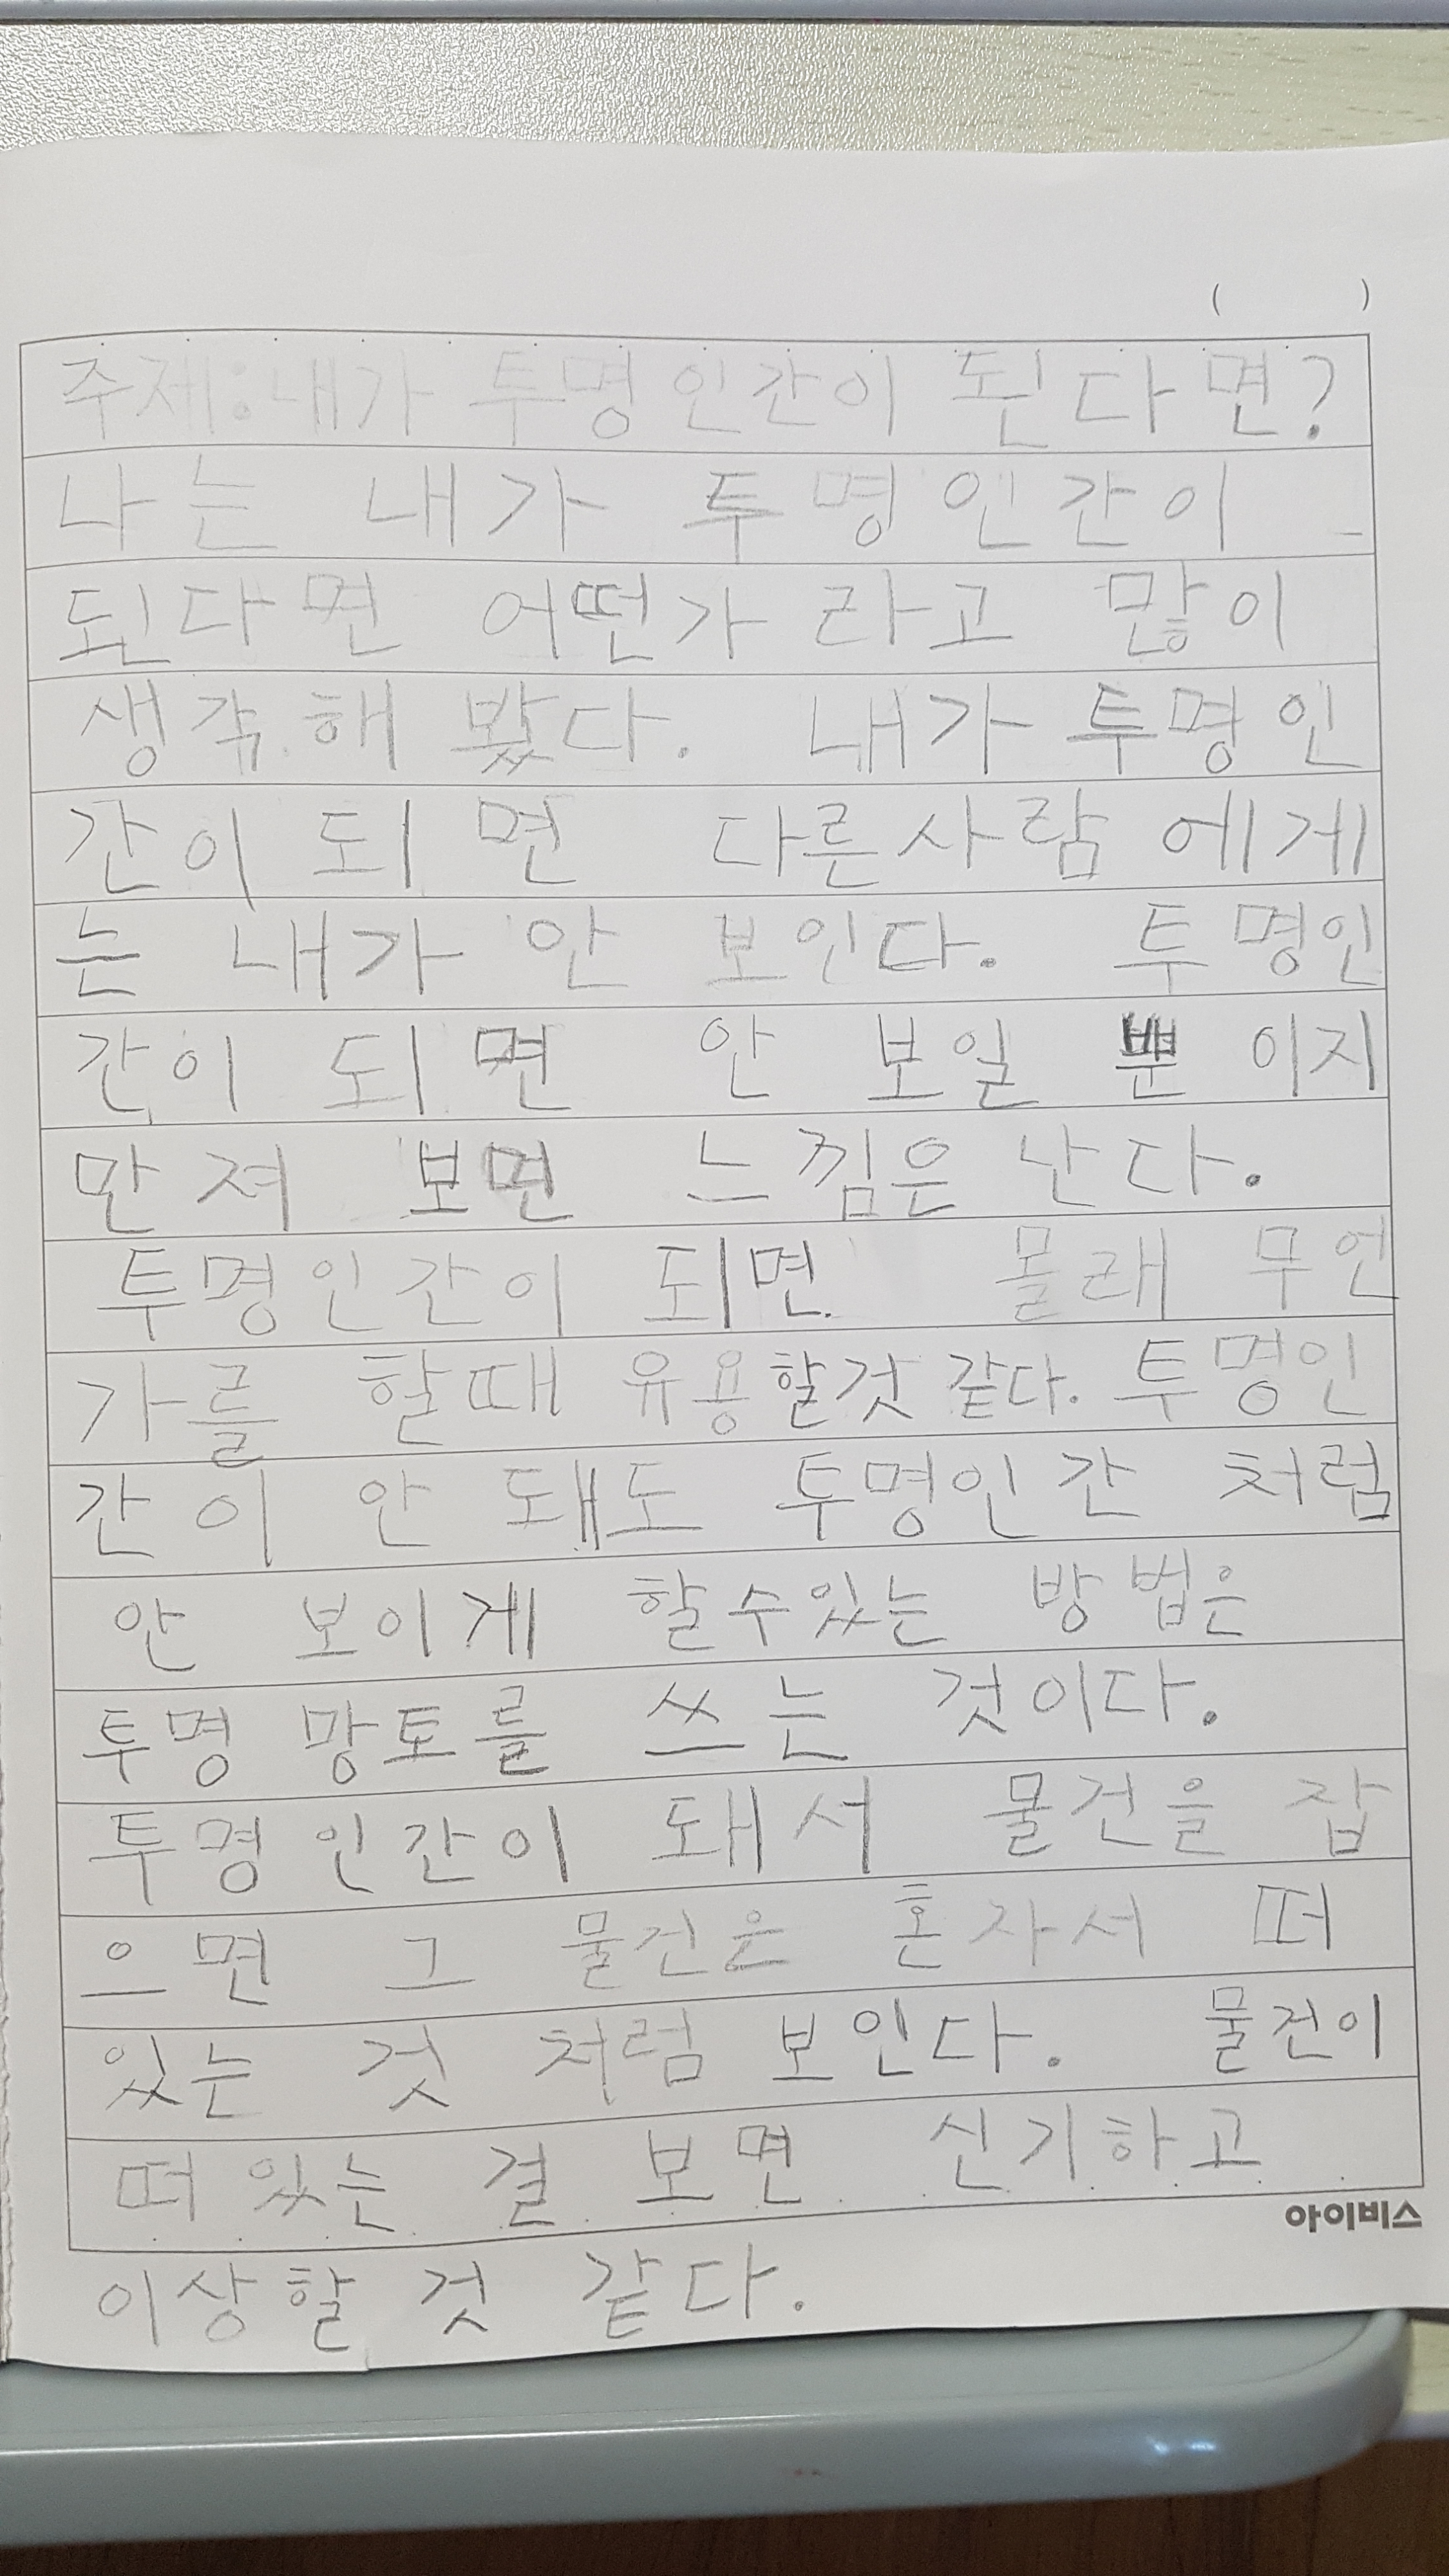 (        )
주제:내가 투명인간이 된다면?
나는 내가 투명인간이
된다면 어떤가 라고 많이
생각해 봤다. 내가 투명인
간이 되면 다른사람에게
는 내가 안 보인다. 투명인
간이 되면 안 보일 뿐 이지
만져 보면 느낌은 난다.
투명인간이 되면 몰래 무언
가를 할때 유용할것 같다. 투명인
간이 안 돼도 투명인간 처럼
안 보이게 할수있는 방법은
투명 망토를 쓰는 것이다.
투명인간이 돼서 물건을 잡
으면 그 물건은 혼자서 떠
있는 것 처럼 보인다. 물건이
떠 있는 걸 보면 신기하고
아이비스
이상할 것 같다.